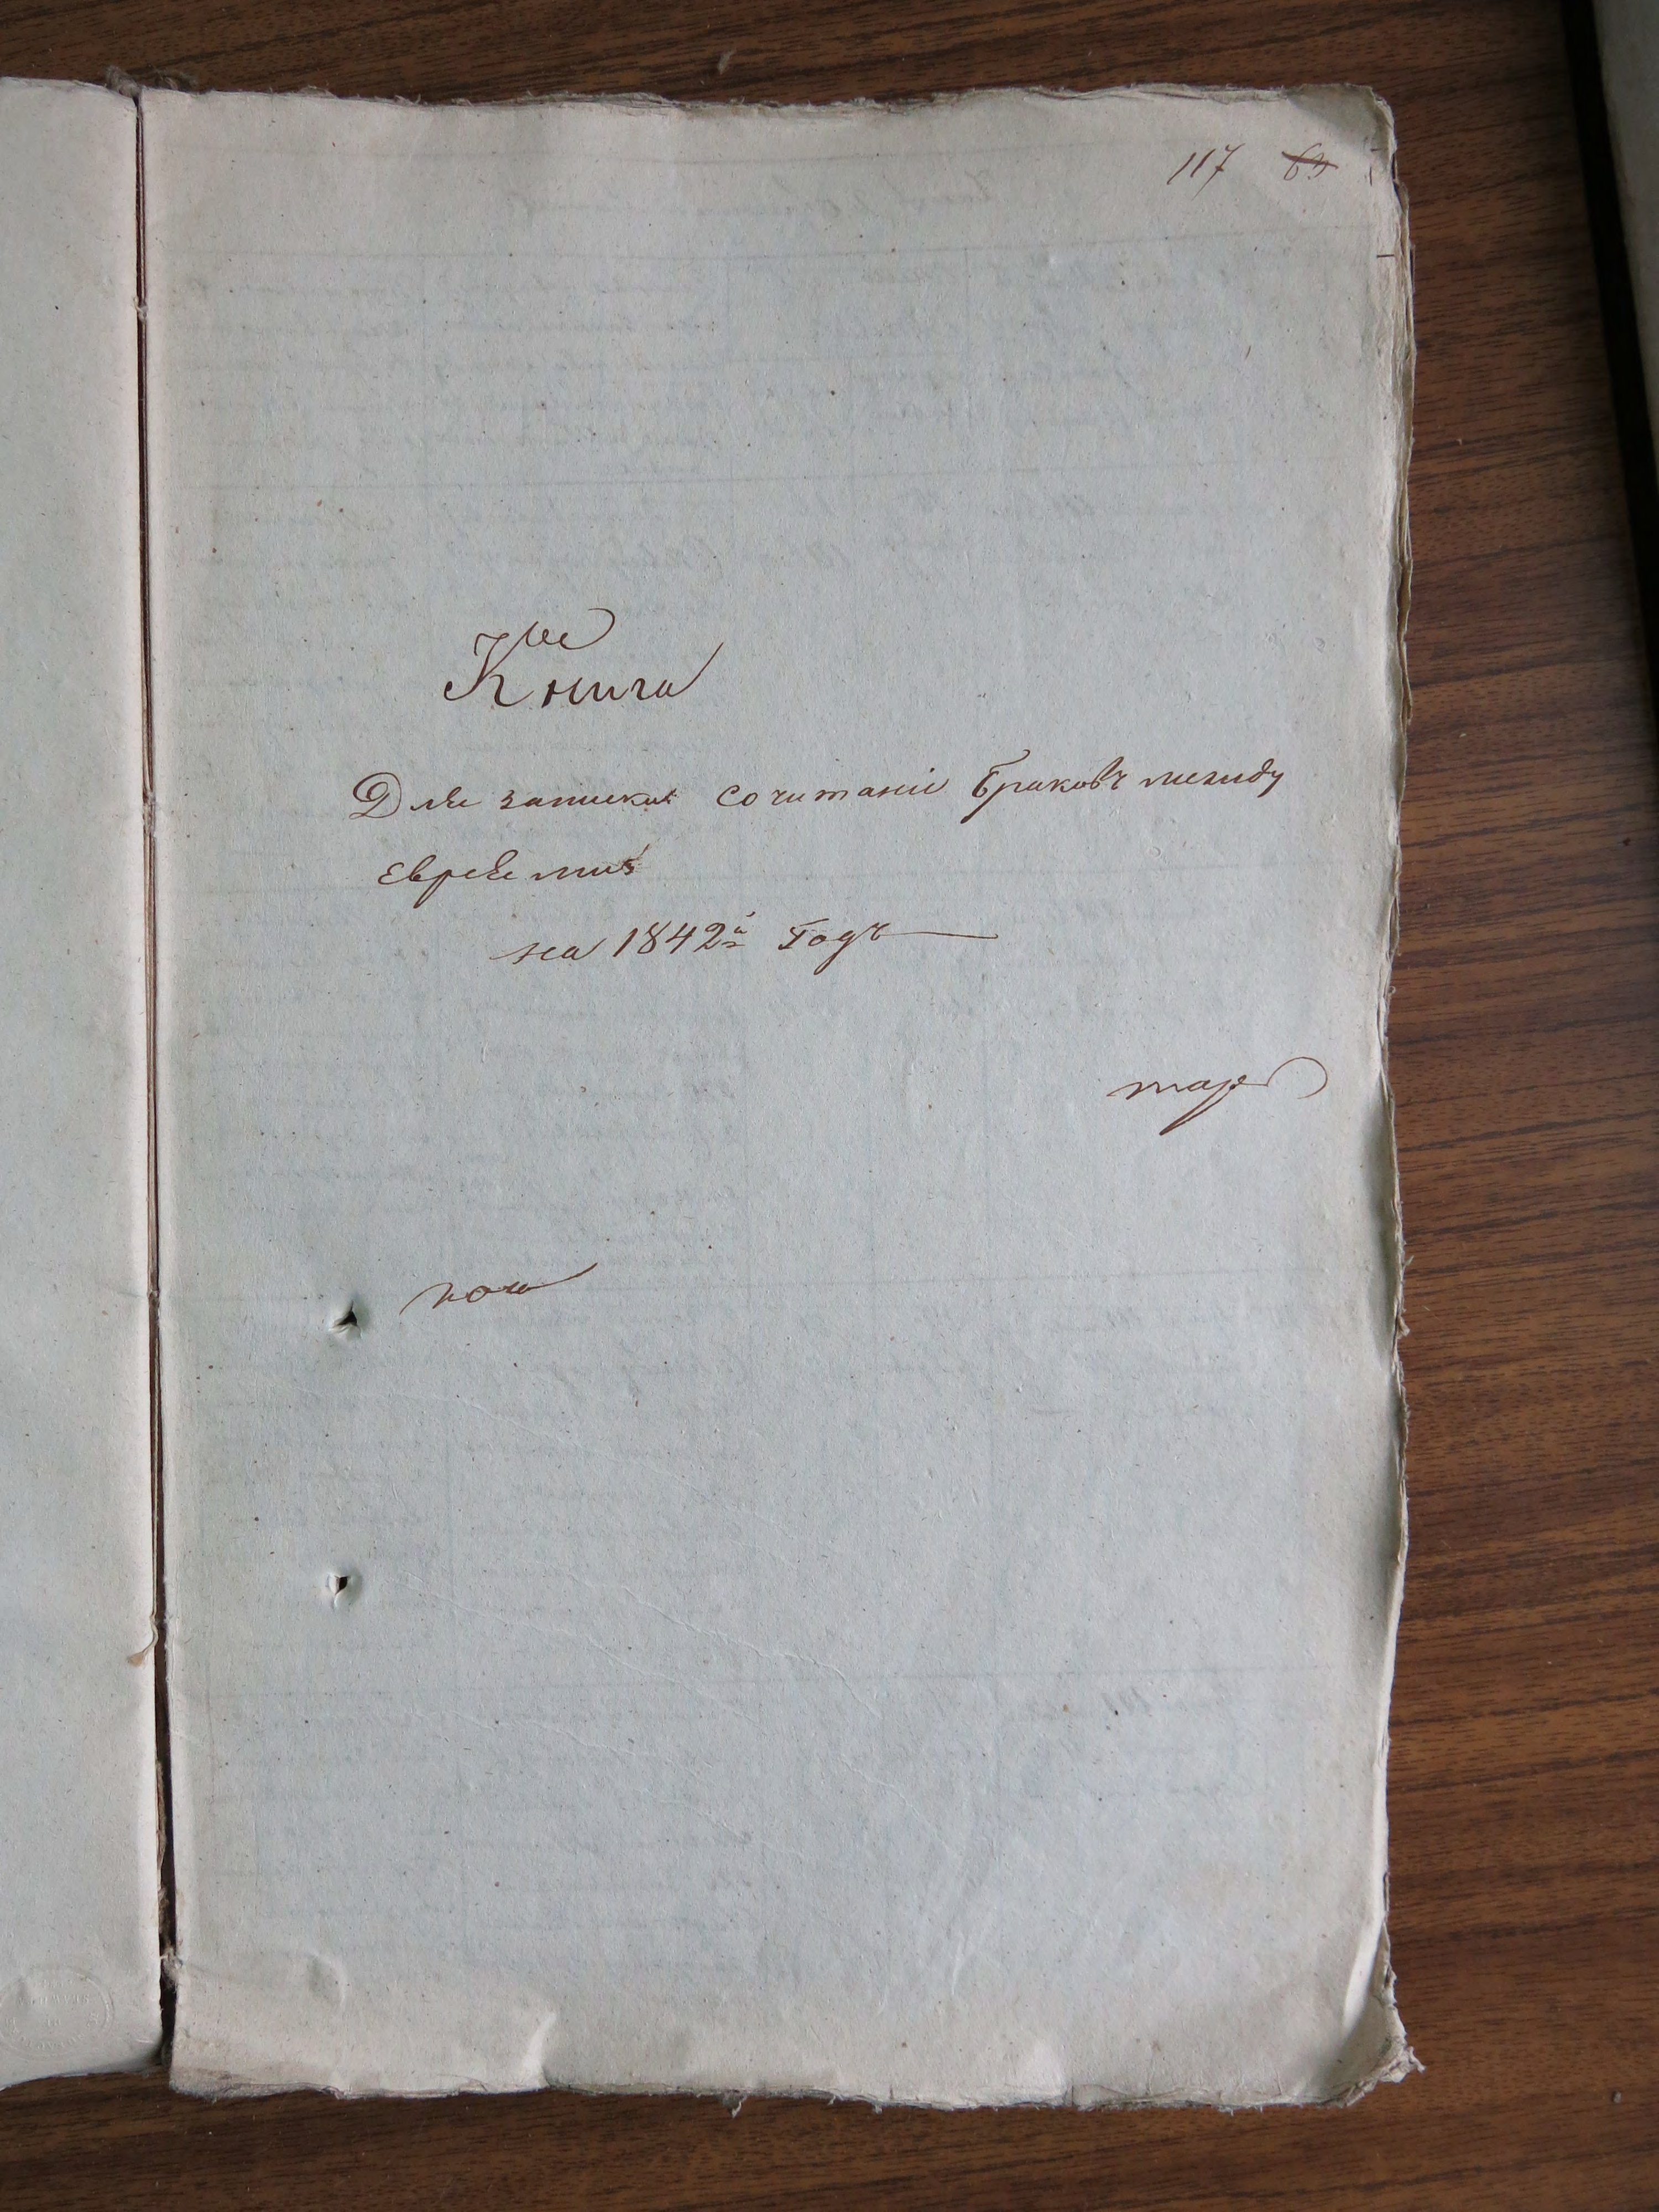 117 63
Книга
Для записки сочитаніи браковъ между
евреями
на 1842й годъ